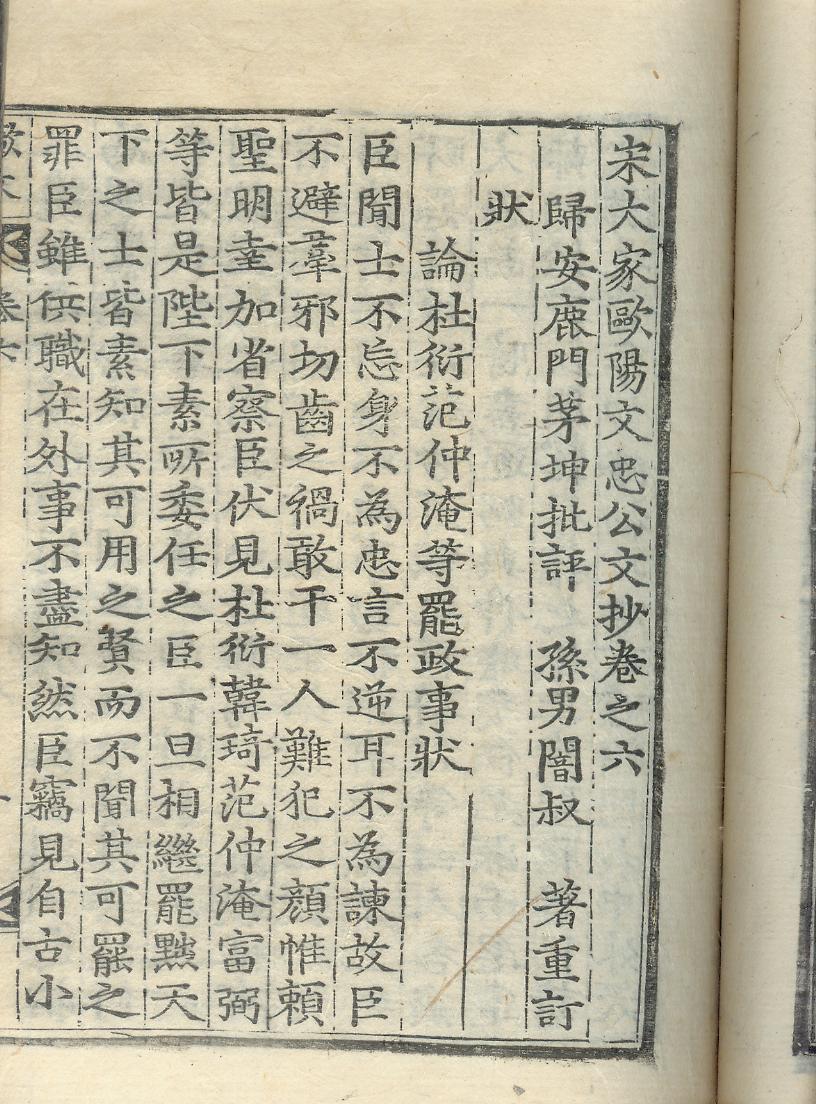 宋大家歐陽文忠公文抄卷之六
歸安鹿門茅坤批評 孫男闇叔 著重訂
狀
論杜衍范仲淹等罷政事狀
臣聞士不忘身不為忠言不逆耳不為諫故臣
不避羣邪切齒之禍敢干一人難犯之顔惟賴
聖明幸加省察臣伏見杜衍韓琦范仲淹富弼
等皆是陛下素所委任之臣一旦相繼罷黜天
下之士皆素知其可用之賢而不聞其可罷之
罪臣雖供職在外事不盡知然臣竊見自古小
卷六